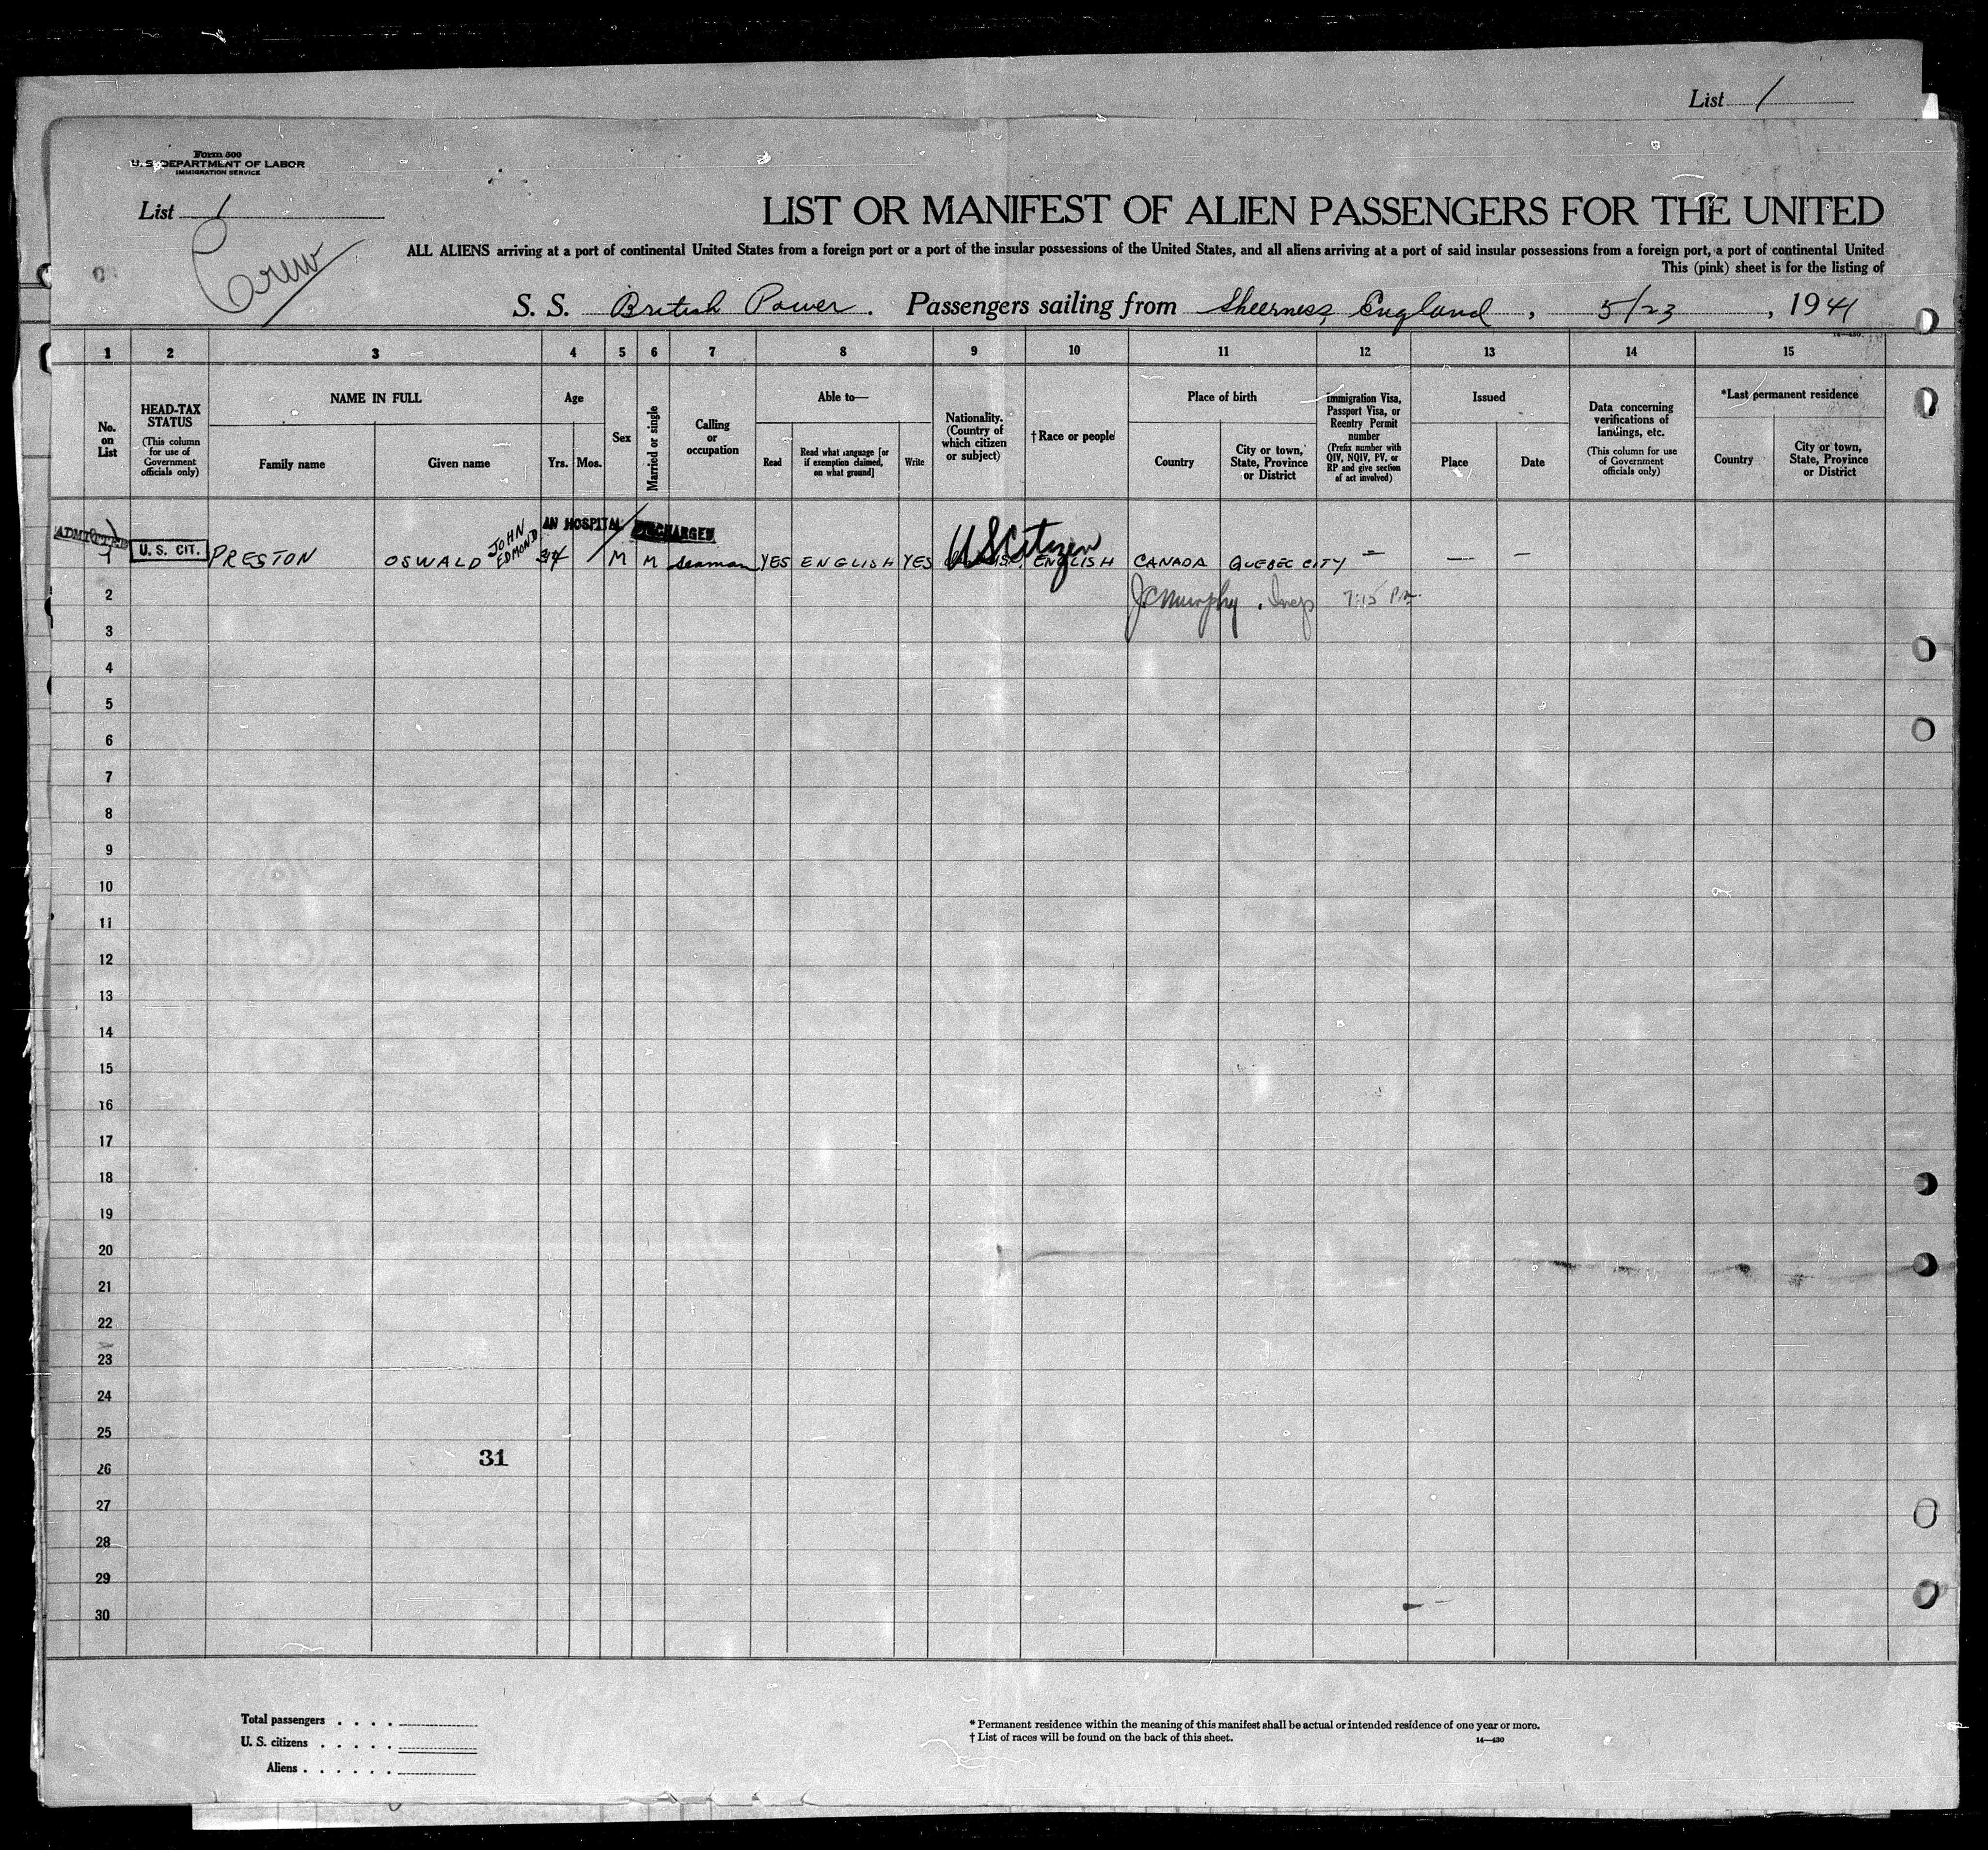 List 1
Form 500
U. S. DEPARTMENT OF LABOR
IMMIGRATION SERVICE
List 1
Crew
LIST OR MANIFEST OF ALIEN PASSENGERS FOR THE UNITED
ALL ALIENS arriving at a port of continental United States from a foreign port or a port of the insular possessions of the United States, and all aliens arriving at a port of said insular possessions from a foreign port, a port of continental United
This (pink) sheet is for the listing of
S. S. British Power. Passengers sailing from Sheerness, England, 5/23, 1941
14—430
1 2 3 4 5 6 7 8 9 10 11 12 13 14 15
No. on List
HEAD-TAX STATUS
(This column for use of Government officials only)
NAME IN FULL
Family name
Given name
Age
Yrs.
Mos.
Sex
Married or single
Calling or occupation
Able to—
Read
Read what language [or if exemption claimed, on what ground]
Write
Nationality. (Country of which citizen or subject)
†Race or people
Place of birth
Country
City or town, State, Province or District
Immigration Visa, Passport Visa, or Reentry Permit number
(Prefix number with QIV, NQIV, PV, or RP and give section of act involved)
Issued
Place
Date
Data concerning verifications of landings, etc.
(This column for use of Government officials only)
*Last permanent residence
Country
City or town, State, Province or District
ADMITTED
IN HOSPITAL / DISCHARGED
1 U. S. CIT. PRESTON OSWALD JOHN EDMOND M M Seaman YES ENGLISH YES US Citizen ENGLISH CANADA QUEBEC CITY — — —
2 JC Murphy. Insp 7:15 PM.
3
4
5
6
7
8
9
10
11
12
13
14
15
16
17
18
19
20
21
22
23
24
25
31
26
27
28
29
30
Total passengers . . . .
U. S. citizens . . . . .
Aliens . . . . . .
* Permanent residence within the meaning of this manifest shall be actual or intended residence of one year or more.
† List of races will be found on the back of this sheet.
14—430